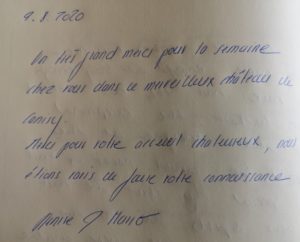 9.8.2020
Un très grand merci pour la semaine
chez vous dans ce merveilleux château de
Canisy.
Merci pour votre accueil chaleureux, nous
étions ravis de faire votre connaissance